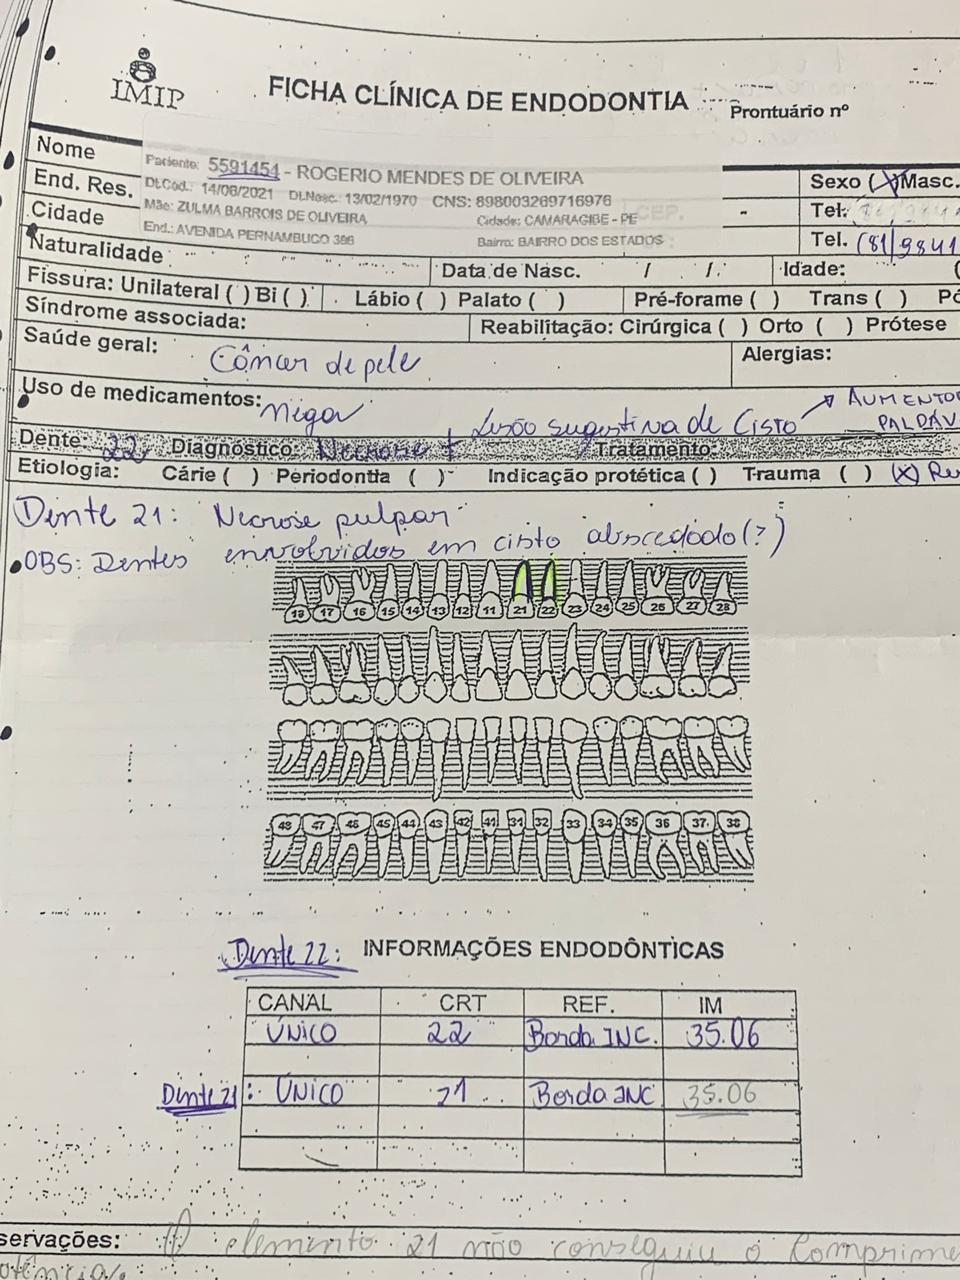 IMIP
FICHA CLÍNICA DE ENDODONTIA
Prontuário nº
Nome
Paciente: 5591454 - ROGERIO MENDES DE OLIVEIRA
Sexo (X) Masc.
End. Res.
Dt.Cad.: 14/06/2021 Dt.Nasc.: 13/02/1970 CNS: 898003269716976
Tel:
Cidade
Mãe: ZULMA BARROIS DE OLIVEIRA Cidade: CAMARAGIBE - PE CEP. -
End.: AVENIDA PERNAMBUCO 386 Bairro: BAIRRO DOS ESTADOS
Tel. (81) 9841
Naturalidade
Data de Nasc. / / Idade: (
Fissura: Unilateral ( ) Bi ( ) Lábio ( ) Palato ( ) Pré-forame ( ) Trans ( ) Pó
Síndrome associada:
Reabilitação: Cirúrgica ( ) Orto ( ) Prótese
Saúde geral: Câncer de pele
Alergias:
Uso de medicamentos: Nega
AUMENTO
Lesão sugestiva de Cisto
Dente: 22 Diagnóstico: Necrose + Tratamento:
Etiologia: Cárie ( ) Periodontia ( ) Indicação protética ( ) Trauma ( ) (X)
Dente 21: Necrose pulpar
OBS: Dentes envolvidos em cisto abscedado (?)
18 17 16 15 14 13 12 11 21 22 23 24 25 26 27 28
48 47 46 45 44 43 42 41 31 32 33 34 35 36 37 38
Dente 22: INFORMAÇÕES ENDODÔNTICAS
CANAL CRT REF. IM
ÚNICO 22 Borda INC. 35.06
Dente 21: ÚNICO 21 Borda INC 35.06
servações: O elemento 21 não conseguiu o Comprime